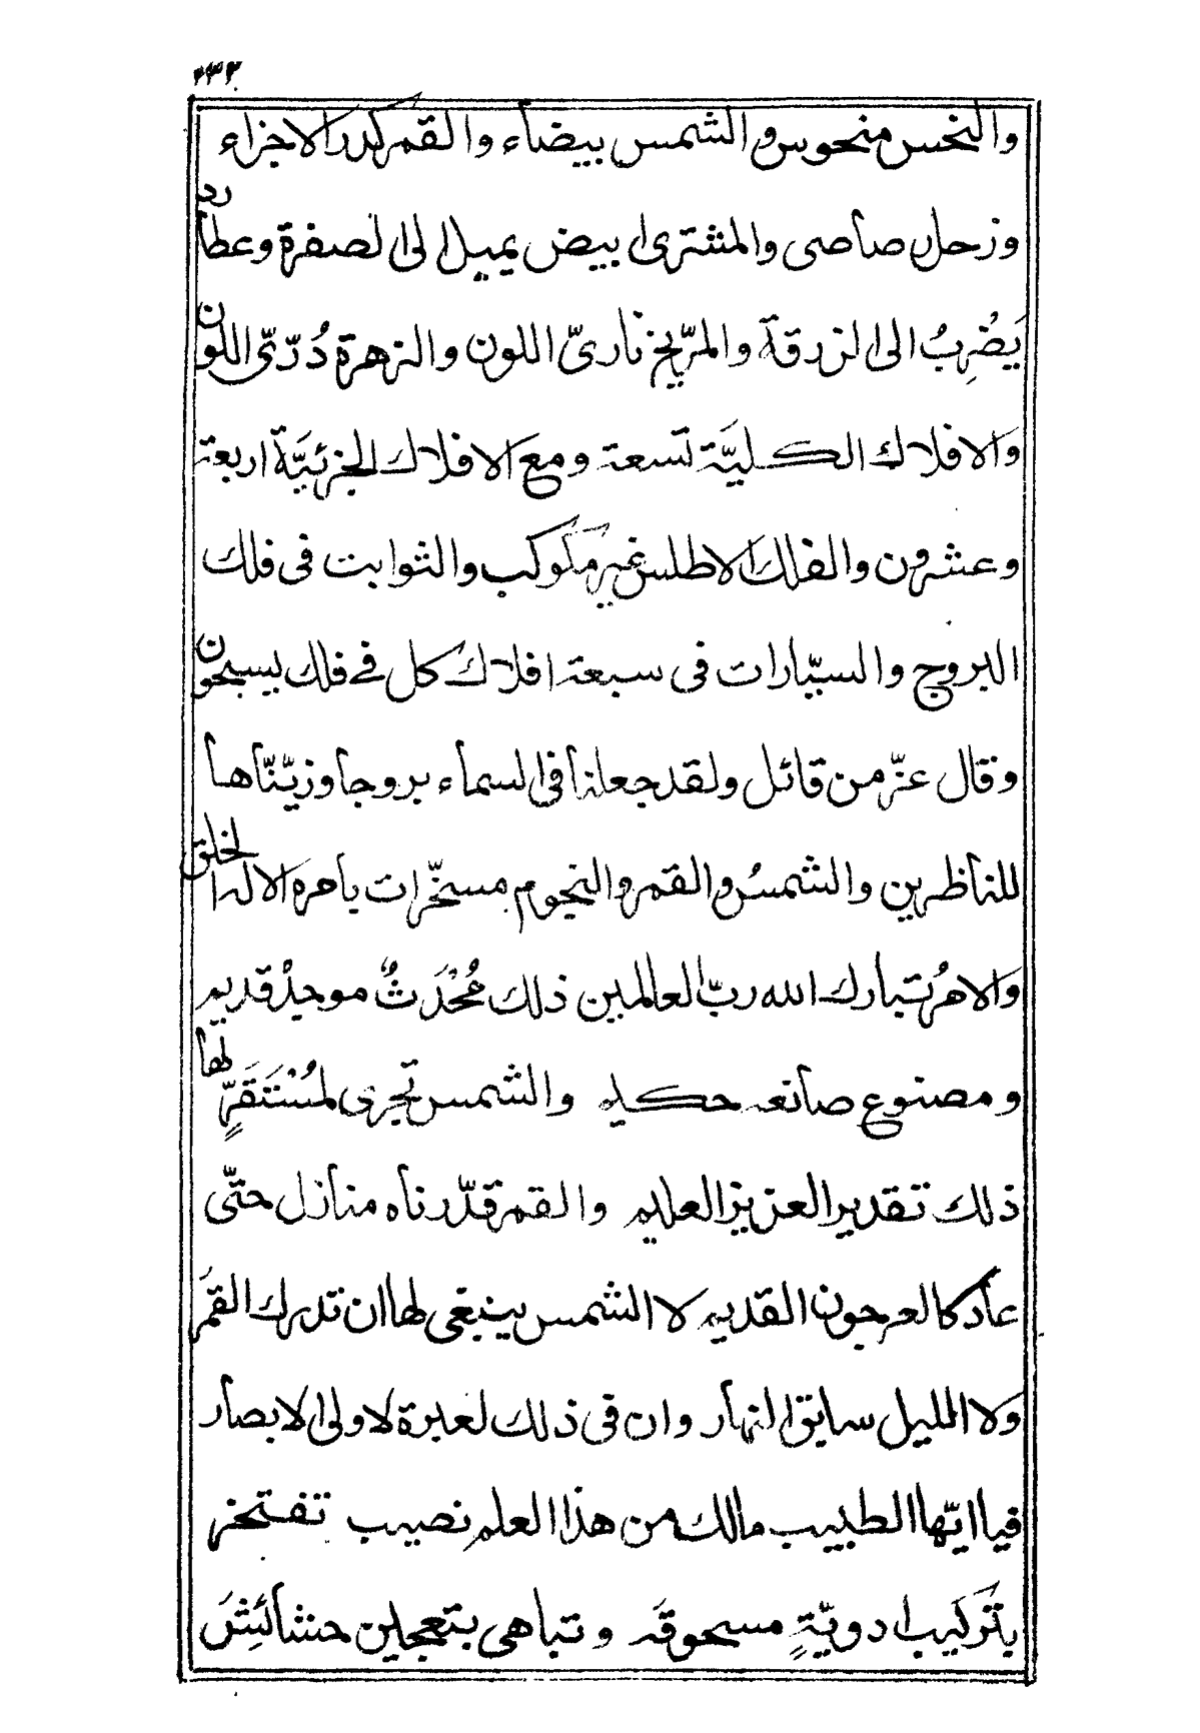 ٢٣٢
والنحس منحوس والشمس بيضاء والقمر كدر الاجزاء
وزحل صاصى والمشترى ابيض يميل الى الصفرة وعطارد
يَضْرِبُ الى الزرقة والمرّيخ نارىّ اللون والزهرة دُرّىّ اللون
والافلاك الكليَّة تسعة ومع الافلاك الجزئيَّة اربعة
وعشرون والفلك الاطلس غير مكوكب والثوابت فى فلك
البروج والسيّارات فى سبعة افلاك كل فى فلك يسبحون
وقال عزّ من قائل ولقد جعلنا فى السماء بروجا وزيّنّاها
للناظرين والشمسُ والقمر والنجوم مسخّرات بامره الا له الخلق
والامرُ تبارك الله ربّ العالمين ذلك مُحْدَثٌ موجدْ قديم
ومصنوع صانعه حكيم والشمس تجرى لمُسْتَقَرٍّ لها
ذلك تقدير العزيز العليم والقمر قدّرناه منازل حتّى
عاد كالعرجون القديم لا الشمس ينبغى لها ان تدرك القمَر
ولا الليل سابق النهار وان فى ذلك لعبرة لاولى الابصار
فيا ايّها الطبيب مالك من هذا العلم نصيب تفتخر
بتَركيب ادويّةٍ مسحوقَه وتباهى بتعجين حشائشَ